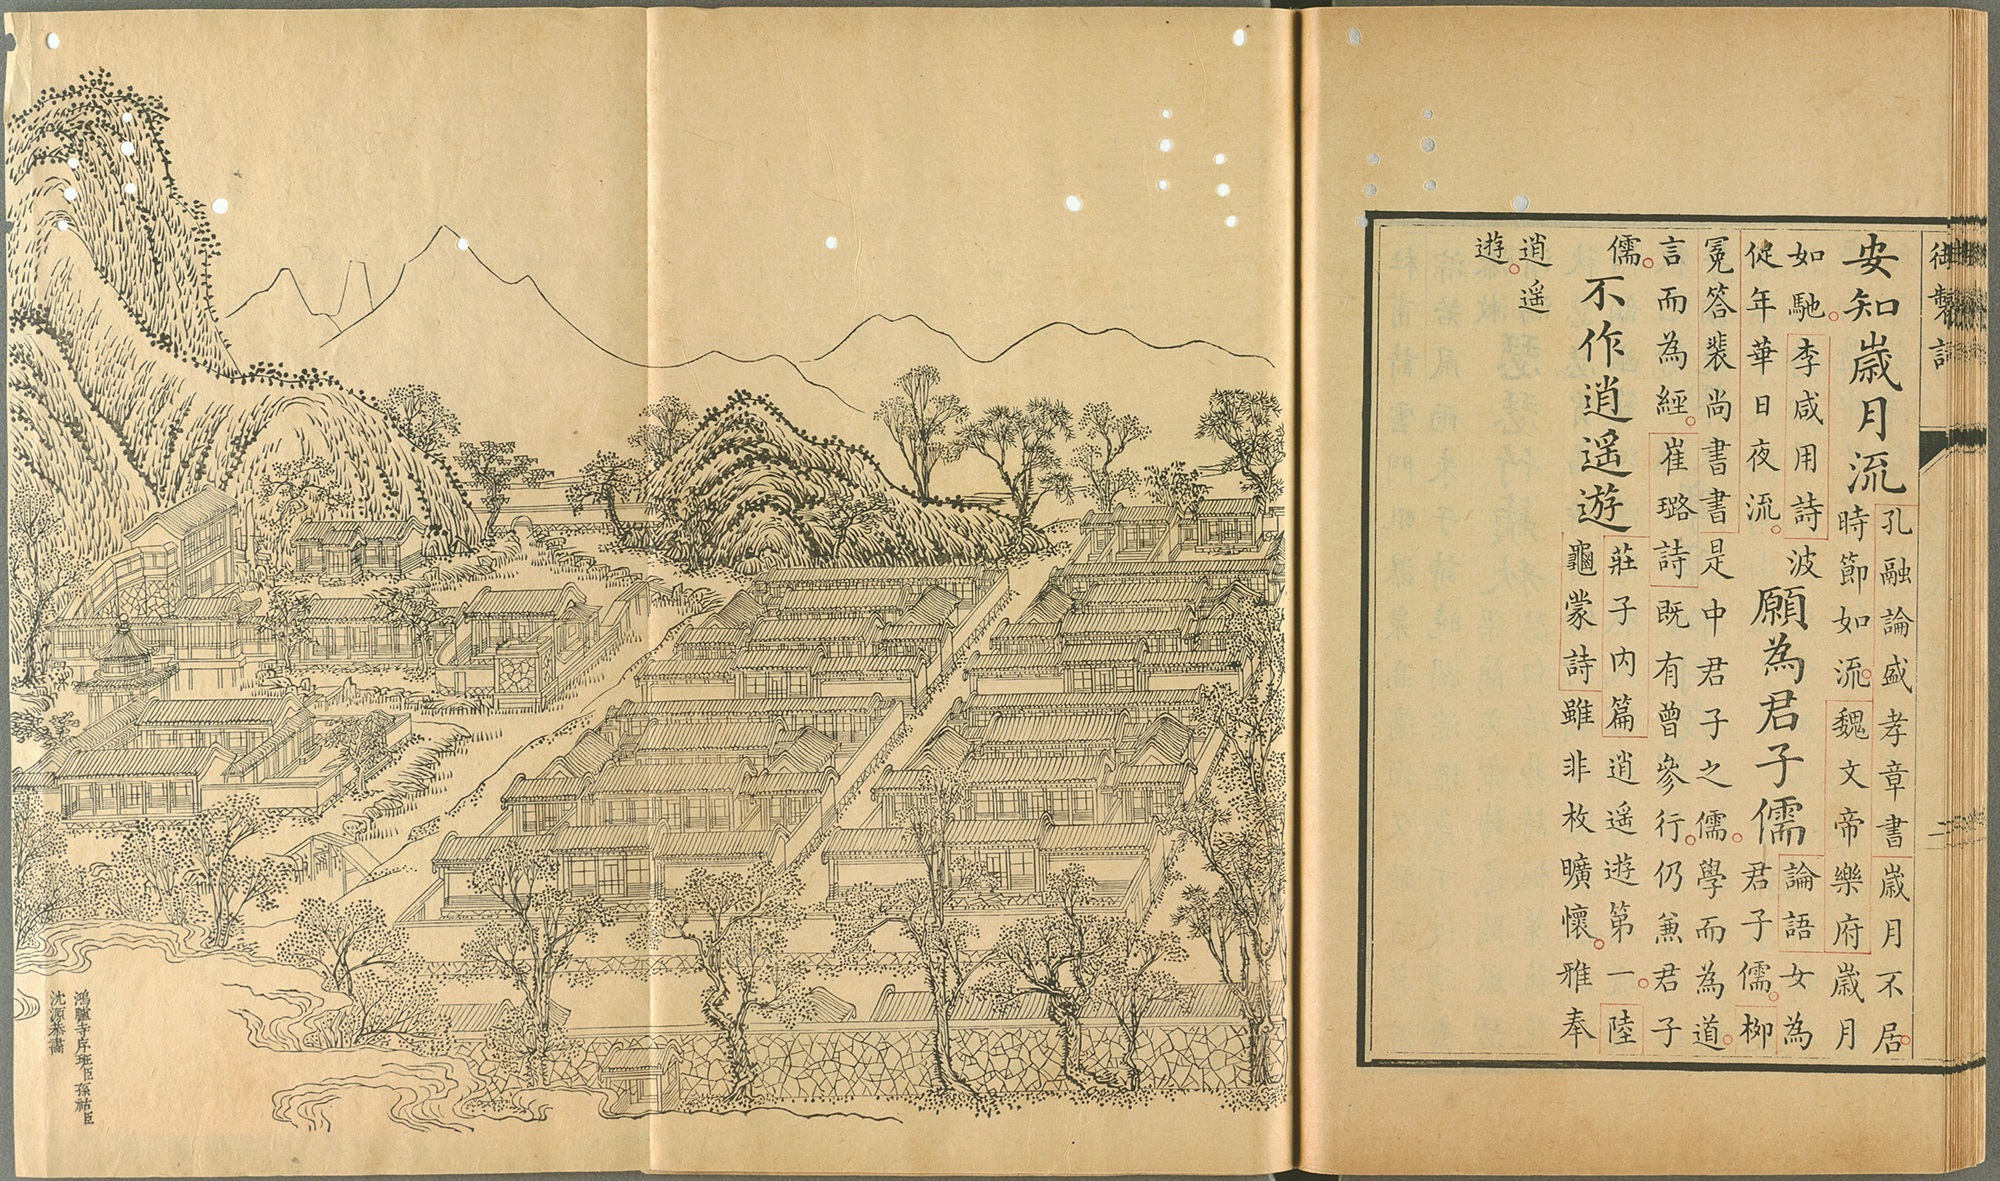 御製詩
安知歲月流
孔融論盛孝章書歲月不居
時節如流魏文帝樂府歲月
如馳李咸用詩波
促年華日夜流
願為君子儒
論語女為
君子儒柳
冕答裴尚書書是中君子之儒學而為道
言而為經崔璐詩既有曾參行仍兼君子
儒
不作逍遙遊
莊子內篇逍遙遊第一陸
龜蒙詩雖非放曠懷雅奉
逍遙
遊
鴻臚寺序班臣孫祜臣
沈源恭畫